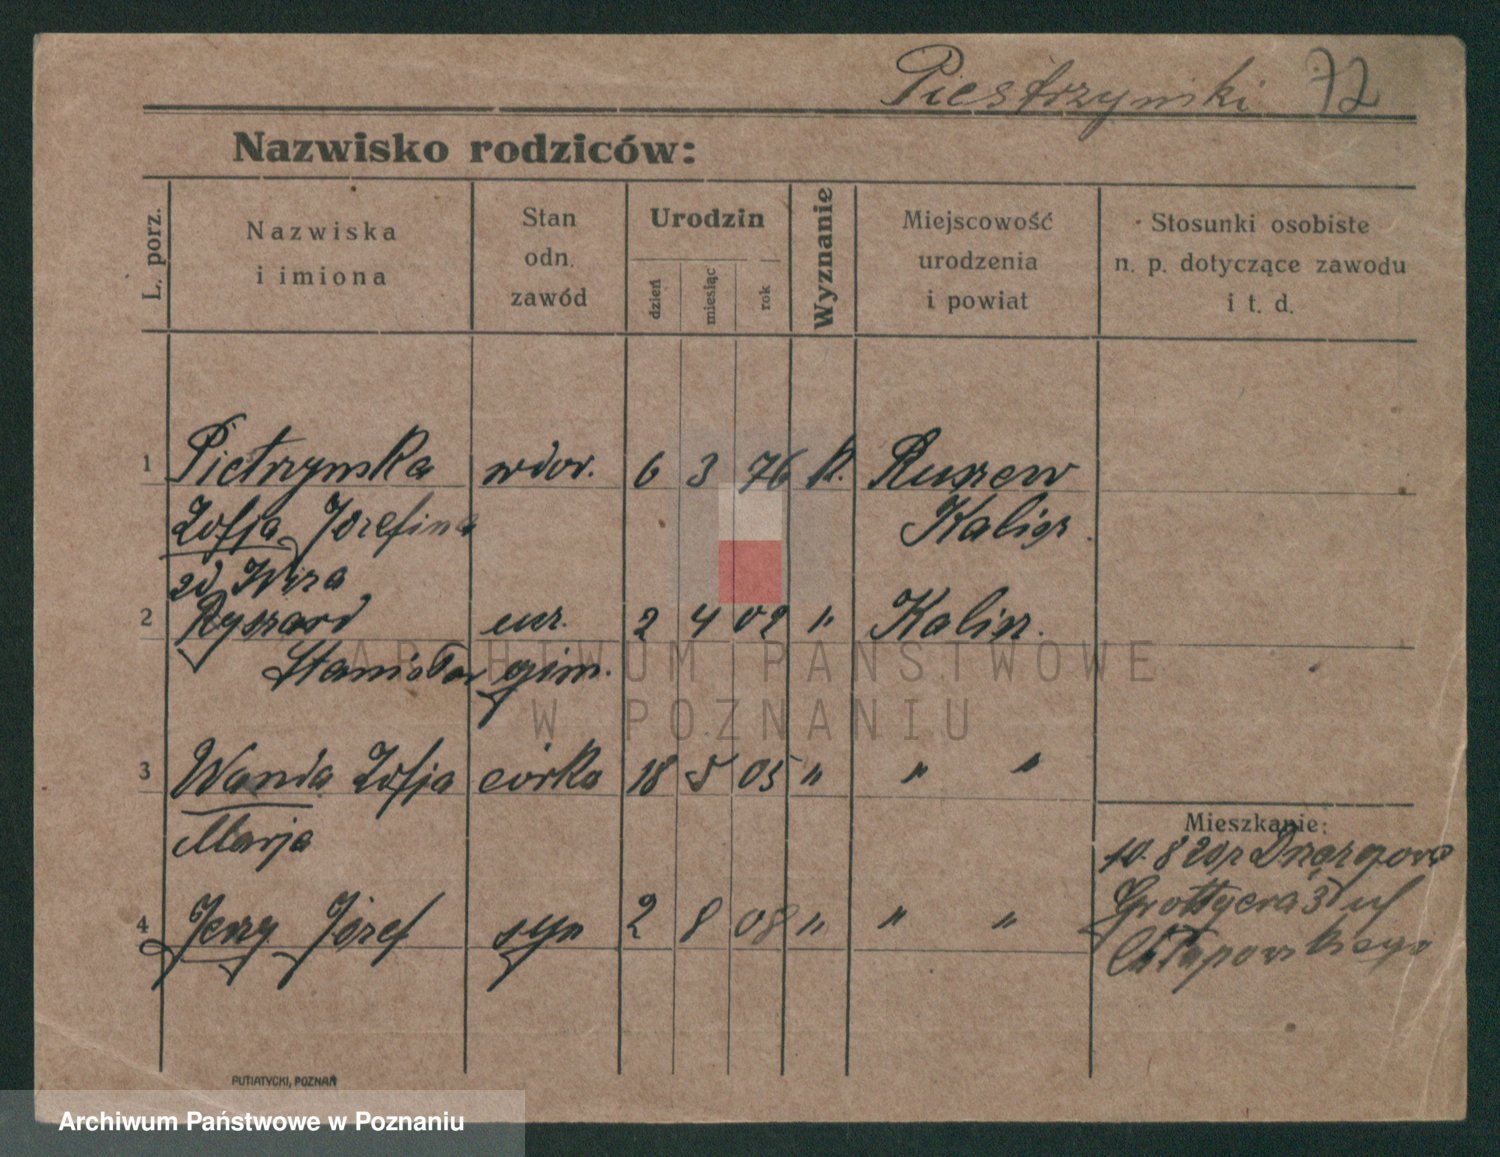 Piestrzyński 72
Nazwisko rodziców:
L. porz.
Nazwiska
i imiona
Stan
odn.
zawód
Urodzin
dzień
miesiąc
rok
Wyznanie
Miejscowość
urodzenia
i powiat
Stosunki osobiste
n. p. dotyczące zawodu
i t. d.
1 Pietrzynska wdow. 6 3 76 k. Ruszew
Zofja Józefina Kalisz
2 Ryszard ucz. 2 4 02 " Kalisz.
Stanisław gim.
3 Wanda Zofja córka 18 5 05 " " "
Marja
4 Jerzy Józef syn 2 8 08 " " "
Mieszkanie:
10. 8 20
PUTIATYCKI, POZNAŃ
ARCHIWUM PAŃSTWOWE
W POZNANIU
Archiwum Państwowe w Poznaniu